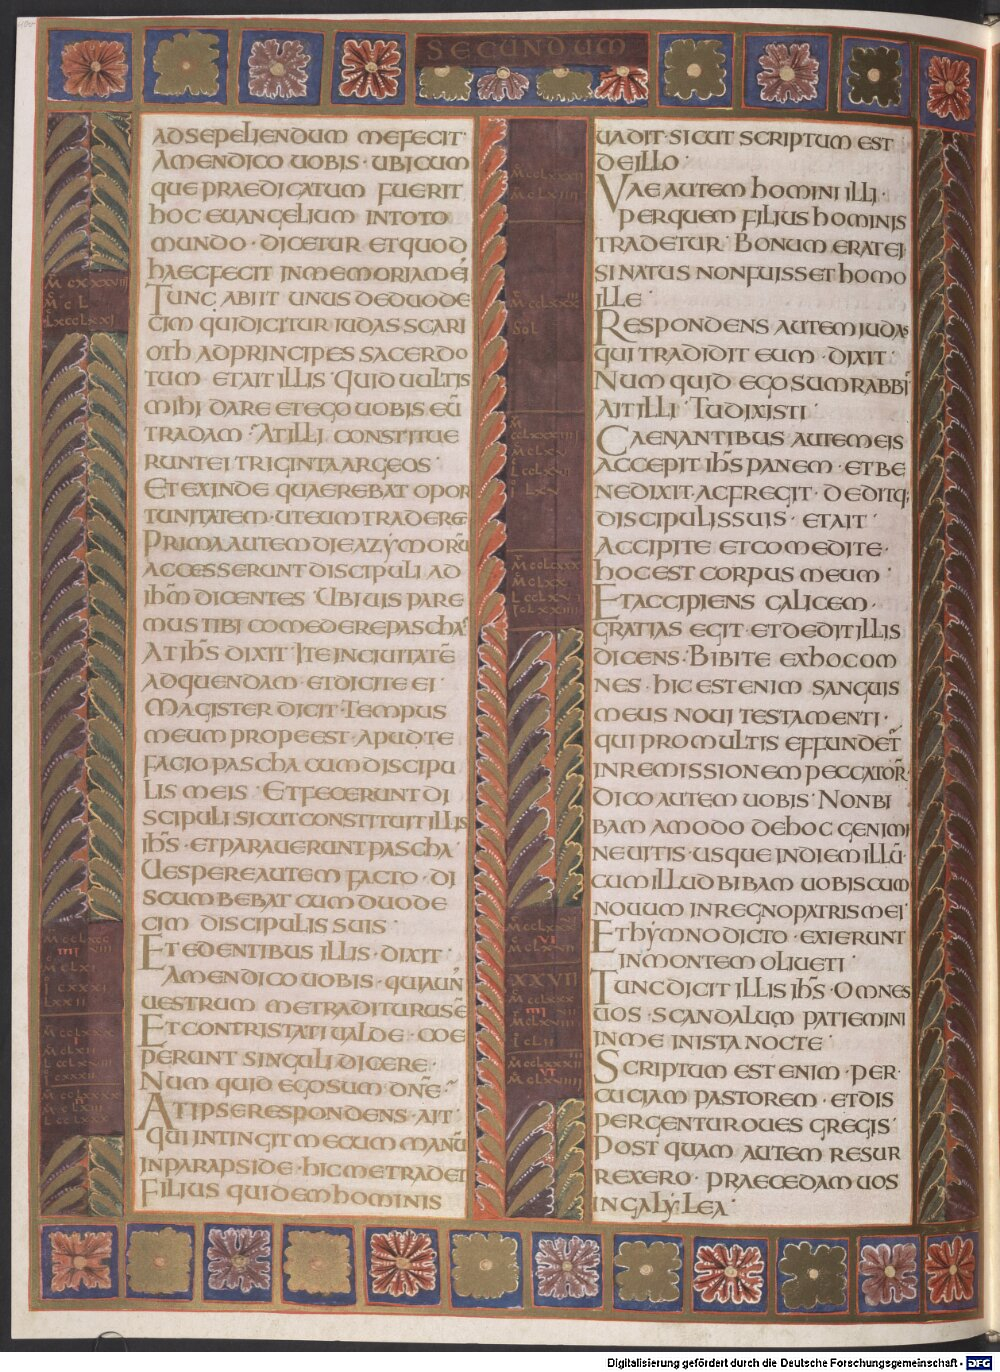 SECUNDUM
ADSEPELIENDUM MEFECIT·
AMENDICO UOBIS· UBICUM
QUE PRAEDICATUM FUERIT
HOC EUANGELIUM INTOTO
MUNDO· DICETUR ETQUOD
HAECFECIT INMEMORIAMEI
TUNC ABIIT UNUS DEDUODE
CIM QUIDICITUR IUDAS SCARI
OTH ADPRINCIPES SACERDO
TUM ETAIT ILLIS QUID UULTIS
MIHI DARE ETEGO UOBIS EŪ
TRADAM· AT ILLI CONSTITUE
RUNTEI TRIGINTA ARGEOS·
ETEXINDE QUAEREBAT OPOR
TUNITATEM· UTEUM TRADERE·
PRIMA AUTEM DIE AZYMORŪ
ACCESSERUNT DISCIPULI AD
IHM̄ DICENTES UBIUIS PARE
MUS TIBI COMEDERE PASCHA
AT IHS̄ DIXIT ITE INCIUITATĒ
ADQUENDAM· ETDICITE EI
MAGISTER DICIT· TEMPUS
MEUM PROPE EST· APUD TE
FACIO PASCHA CUM DISCIPU
LIS MEIS· ETFECERUNT DI
SCIPULI SICUT CONSTITUIT ILLIS
IHS̄· ETPARAUERUNT PASCHA
UESPERE AUTEM FACTO· DI
SCUMBEBAT CUM DUODE
CIM DISCIPULIS SUIS·
ET EDENTIBUS ILLIS· DIXIT·
AMENDICO UOBIS· QUIA UN
UESTRUM METRADITURUSĒ
ET CONTRISTATI UALDE· COE
PERUNT SINGULI DICERE·
NUM QUID EGOSUM· DN̄E·
AT IPSE RESPONDENS· AIT·
QUI INTINGIT MECUM MANŪ
INPARAPSIDE· HICMETRADET
FILIUS QUIDEM HOMINIS
UADIT· SICUT SCRIPTUM EST
DEILLO·
VAE AUTEM HOMINI ILLI·
PERQUEM FILIUS HOMINIS
TRADETUR· BONUM ERAT EI
SI NATUS NONFUISSET HOMO
ILLE·
RESPONDENS AUTEM IUDAS
QUI TRADIDIT EUM· DIXIT·
NUM QUID EGO SUM RABBI
AIT ILLI· TU DIXISTI·
CAENANTIBUS AUTEM EIS
ACCEPIT IHS̄ PANEM· ETBE
NEDIXIT· ACFREGIT· DEDITQ;
DISCIPULIS SUIS· ETAIT·
ACCIPITE ETCOMEDITE·
HOC EST CORPUS MEUM·
ET ACCIPIENS CALICEM·
GRATIAS EGIT· ETDEDIT ILLIS
DICENS· BIBITE EXHOC OM
NES· HIC EST ENIM SANGUIS
MEUS NOUI TESTAMENTI·
QUI PRO MULTIS EFFUNDET̄
INREMISSIONEM PECCATOR̄·
DICO AUTEM UOBIS· NON BI
BAM AMODO DEHOC GENIMI
NE UITIS· USQUE INDIEM ILLŪ·
CUM ILLUD BIBAM UOBISCUM
NOUUM INREGNO PATRIS MEI·
ET HYMNO DICTO· EXIERUNT
INMONTEM OLIUETI·
TUNC DICIT ILLIS IHS̄· OMNES
UOS· SCANDALUM PATIEMINI
INME INISTA NOCTE·
SCRIPTUM EST ENIM· PER
CUCIAM PASTOREM· ETDIS
PERGENTUR OUES GREGIS·
POST QUAM AUTEM RESUR
REXERO· PRAECEDAM UOS
INGALYLEA·
Digitalisierung gefördert durch die Deutsche Forschungsgemeinschaft - DFG